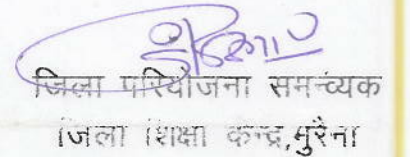 जिला परियोजना समन्व्यक
जिला शिक्षा केन्द्र,मुरैना